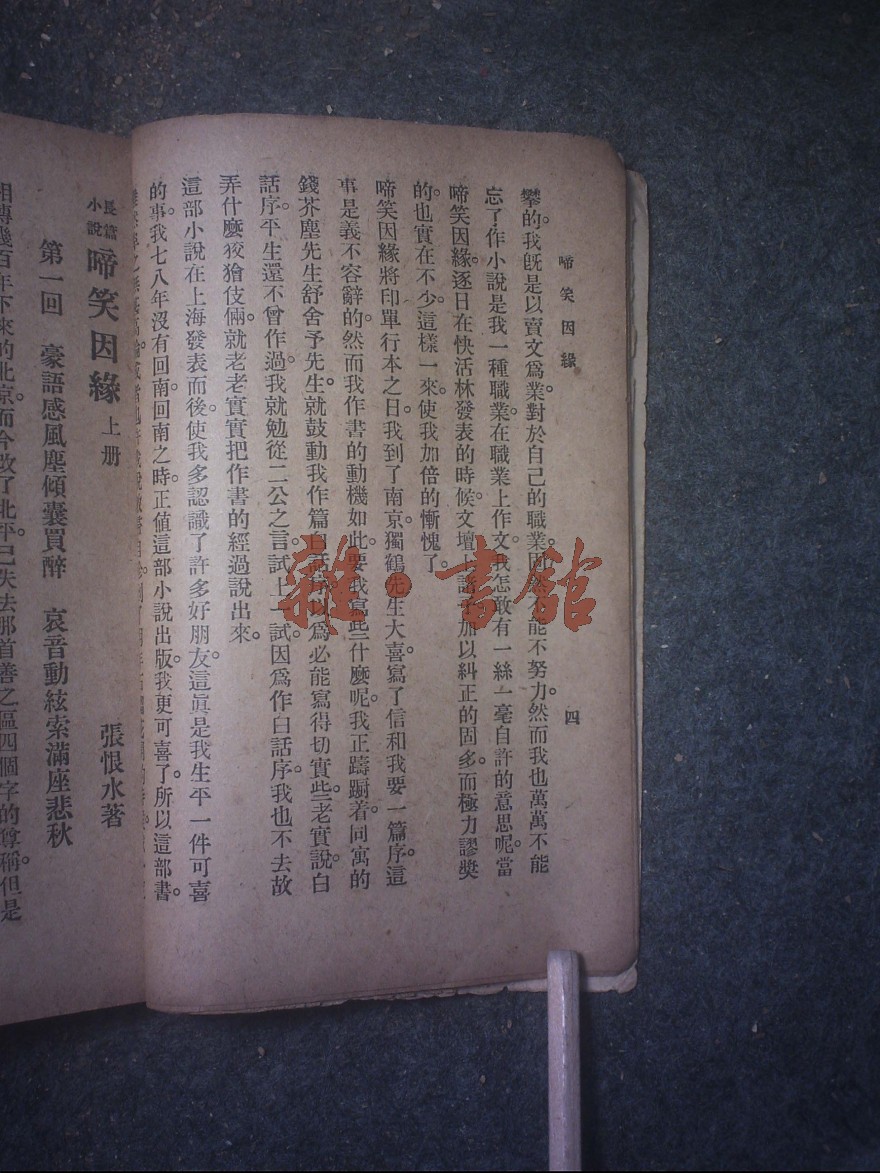 啼笑因緣
四
攀的。我旣是以賣文爲業。對於自己的職業。固然不能不努力。然而我也萬萬不能
忘了。作小說是我一種職業。在職業上作文。我怎敢有一絲一毫自許的意思呢。當
啼笑因緣。逐日在快活林發表的時候。文壇上諸子。加以糾正的固多。而極力謬奬
的。也實在不少。這樣一來。使我加倍的慚愧了。
啼笑因緣將印單行本之日。我到了南京。獨鶴先生大喜。寫了信和我要一篇序。這
事是義不容辭的。然而我作書的動機如此。要我寫些什麼呢。我正躊躇着。同寓的
錢芥塵先生。舒舍予先生。就鼓動我作篇白話序。以爲必能寫得切實些。老實說。白
話序。平生還不曾作過。我就勉從二公之言。試上一試。因爲作白話序。我也不去故
弄什麼狡獪伎倆。就老老實實把作書的經過說出來。
這部小說在上海發表而後。使我多認識了許多好朋友。這眞是我生平一件可喜
的事。我七八年沒有回南。回南之時。正値這部小說出版。我更可喜了。所以這部書。
長篇小說 啼笑因緣 上册
張恨水著
第一回 豪語感風塵傾囊買醉 哀音動絃索滿座悲秋
相傳幾百年下來的北京。而今改了北平。已失去那首善之區四個字的尊稱。但是
雜·書館